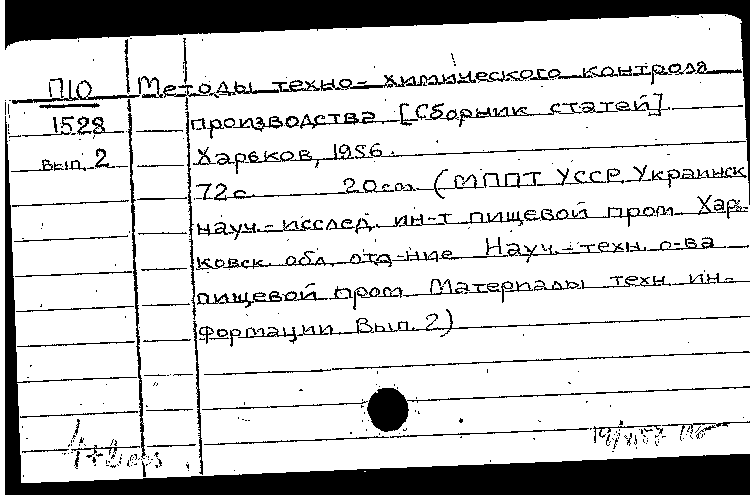 П10 Методы техно-химического контроля
1528 производства [Сборник статей].
Вып. 2 Харьков, 1956.
72 с. 20 см (МППТ УССР. Украинск.
науч.-исслед. ин-т пищевой пром. Харь-
ковск. обл. отд-ние Науч.-техн. о-ва
пищевой пром. Материалы техн. ин-
формации. Вып. 2)